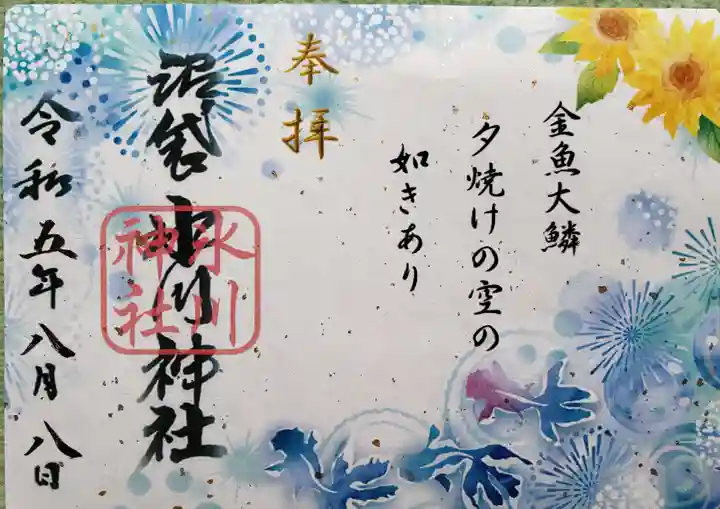 金魚大鱗
夕焼けの空の
如きあり
奉拝
沼袋氷川神社
氷川
神社
令和五年八月八日